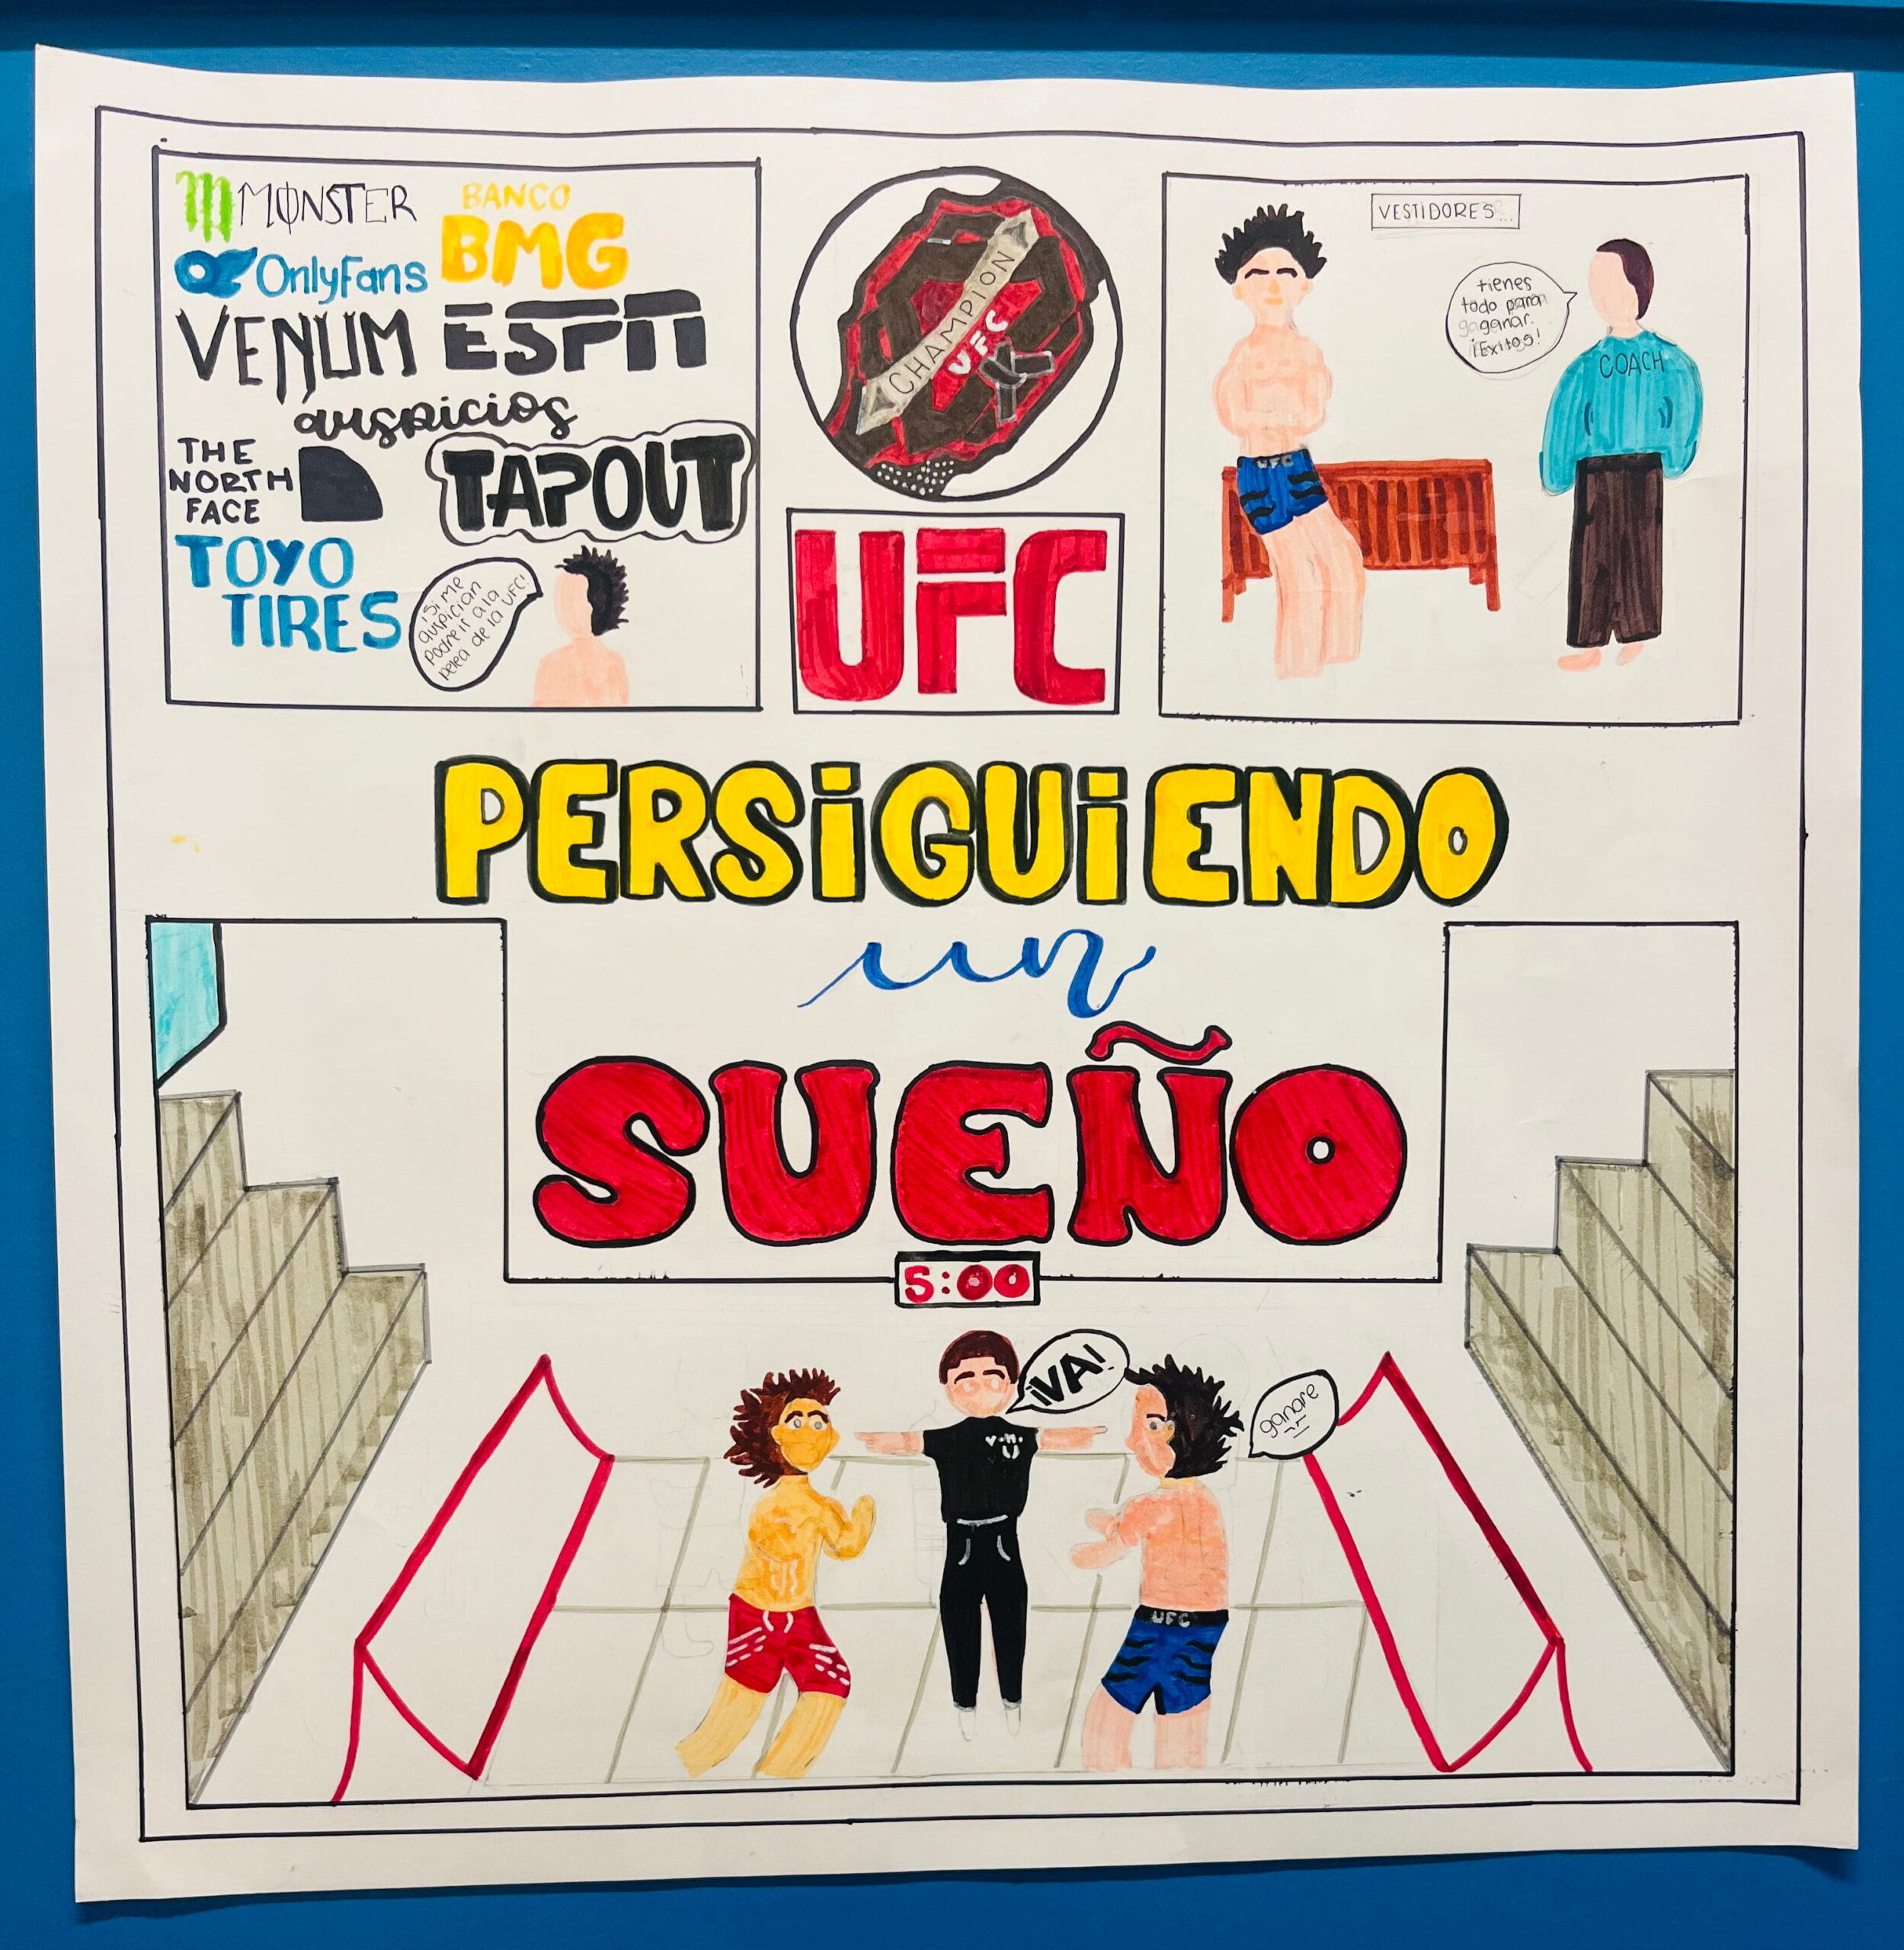 MONSTER
BANCO
BMG
OnlyFans
VENUM
ESPN
auspicios
THE
NORTH
FACE
TAPOUT
TOYO
TIRES
¡Si me
auspician
podre ir a la
pelea de la UFC!
CHAMPION
UFC
UFC
VESTIDORES...
tienes
todo para
ganar.
¡Exitos!
COACH
UFC
PERSiGUiENDO
un
SUEÑO
5:00
¡VA!
ganare
UFC